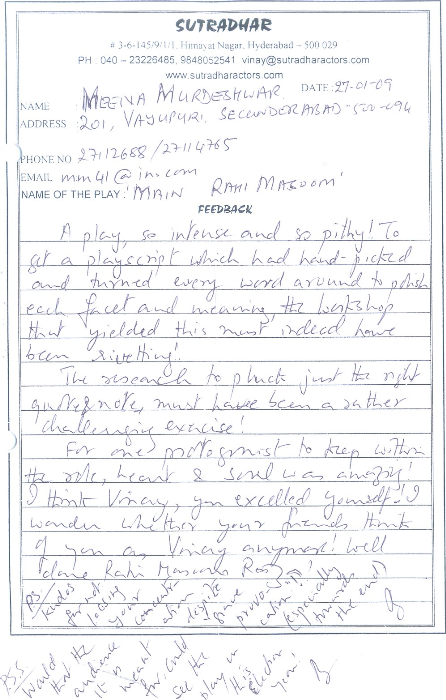 SUTRADHAR
# 3-6-145/9/1/1, Himayat Nagar, Hyderabad – 500 029
PH : 040 – 23226485, 9848052541 vinay@sutradharactors.com
www.sutradharactors.com
DATE : 27-01-09
NAME MEENA MURDESHWAR
ADDRESS 201, VAYUPURI. SECUNDERABAD-500-094
PHONE NO 27112688 / 27114765
EMAIL
NAME OF THE PLAY : 'MAIN RAHI MASOOM'
FEEDBACK
A play, so intense and so pithy! To
get a playscript which had hand-picked
and turned every word around to polish
each facet and meaning, the workshop
that yielded this must indeed have
been rivetting!
The research to pluck just the right
quote & note, must have been a rather
challenging exercise!
For one protagonist to keep within
the role, heart & soul was amazing!
I think Vinay, you excelled yourself! I
wonder whether your friends think
of you as Vinay anymore! Well
done Rahi Masoom Raza!
PS/ Kudos for not losing your concentration despite grave provocation! (especially towards the end)
PPS Would that the audience it is meant for, could see the play in this election year!